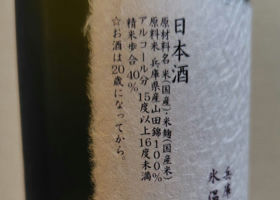 日本酒
原材料名 米(国産)・米麹(国産米)
原料米 兵庫県産山田錦100%
アルコール分 15度以上16度未満
精米歩合 40%
☆お酒は20歳になってから。
兵庫